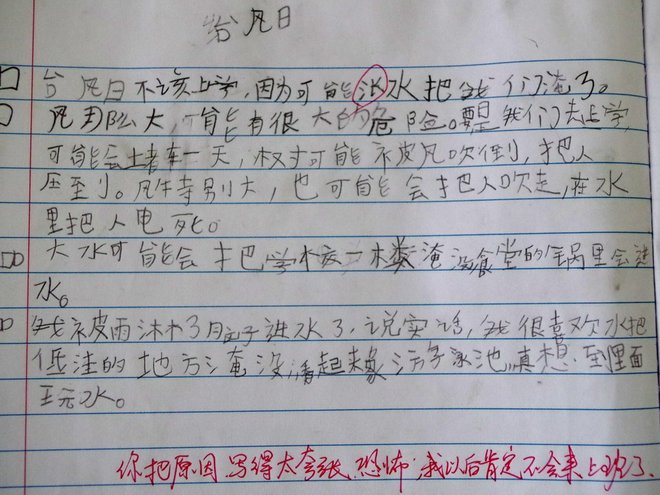 台风日
台风日不该上学,因为可能洪水把我们淹了。
风那么大可能有很大的危险。要是我们去上学,
可能会堵车一天,树可能被风吹倒,把人
压到。风特别大,也可能会把人吹走,在水
里把人电死。
大水可能会把学校一楼淹没食堂的锅里会进
水。
我被雨淋了月子进水了,说实话,我很喜欢水把
低洼的地方淹没,看起来象游泳池,真想到里面
玩水。
你把原因写得太夸张恐怖,我以后肯定不会来上班了。